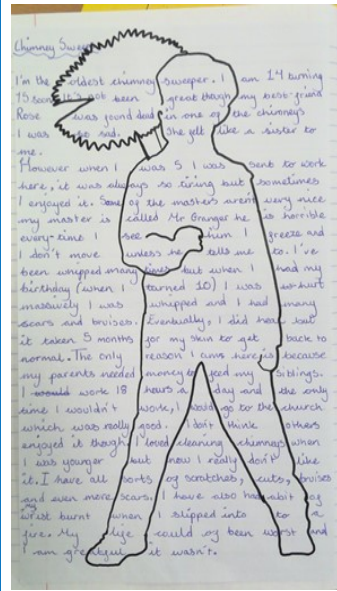 Chimney Sweeper
I'm the oldest chimney sweeper. I am 14 turning
15 soon. It's not been great though my best-friend
Rose was found dead in one of the chimneys
I was so sad. She felt like a sister to
me.
However when I was 5 I was sent to work
here, it was always so tiring but sometimes
I enjoyed it. Some of the masters aren't very nice
my master is called Mr Granger he is horrible
every-time I see him I freeze and
I don't move unless he tells me to. I've
been whipped many times but when I had my
birthday (when I turned 10) I was so hurt
massively I was whipped and I had many
scars and bruises. Eventually, I did heal but
it taken 5 months for my skin to get back to
normal. The only reason I am here is because
my parents needed money to feed my siblings.
I would work 18 hours a day and the only
time I wouldn't work, I would go to the church
which was really good. I don't think others
enjoyed it though. I loved cleaning chimneys when
I was younger but now I really don't like
it. I have all sorts of scratches, cuts, bruises
and even more scars. I have also had a bit of
my wrist burnt when I slipped into to a
fire. My life could of been worst and
I am greatful it wasn't.